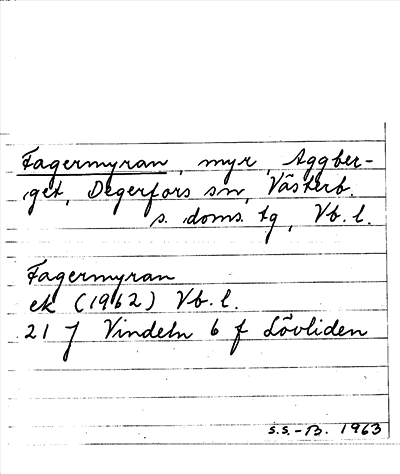 Fagermyran, myr, Aggber-
get, Degerfors sn, Västerb.
s. doms. tg, Vb. l.
Fagermyran
ek (1962) Vb. l.
21 J Vindeln 6 f Lövliden
S.S.-B. 1963